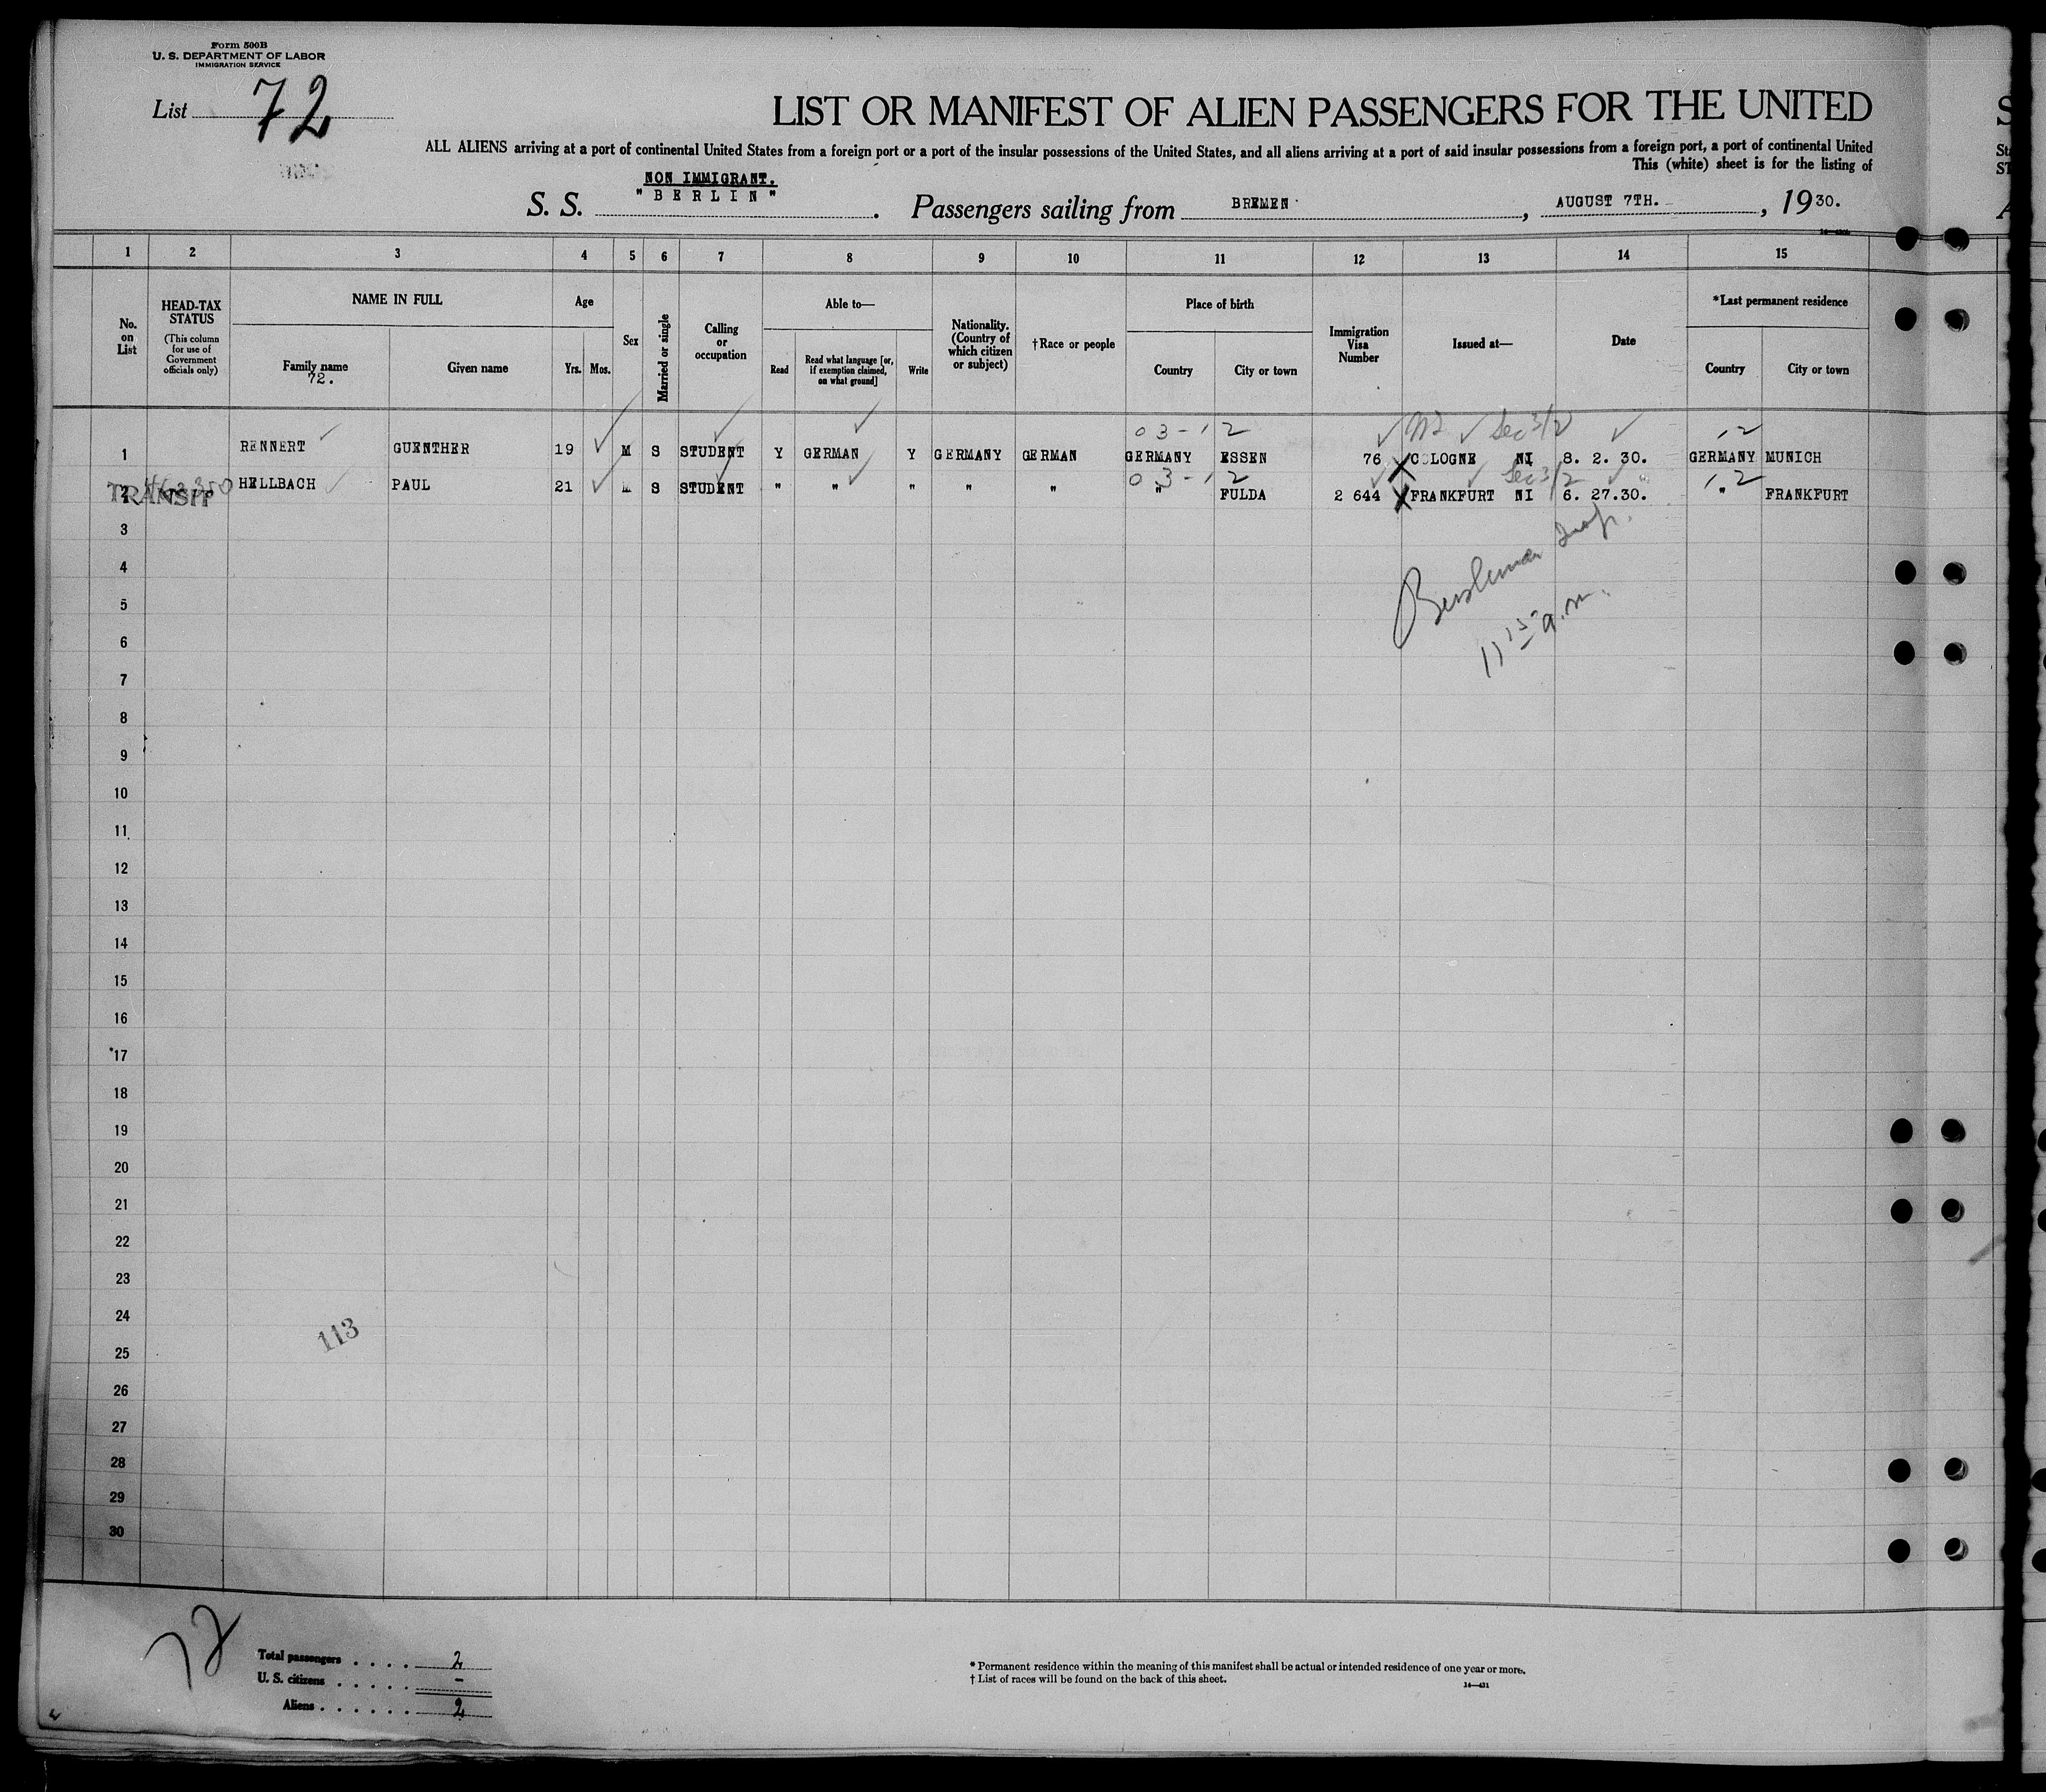 Form 500B
U. S. DEPARTMENT OF LABOR
IMMIGRATION SERVICE
List 72
LIST OR MANIFEST OF ALIEN PASSENGERS FOR THE UNITED
ALL ALIENS arriving at a port of continental United States from a foreign port or a port of the insular possessions of the United States, and all aliens arriving at a port of said insular possessions from a foreign port, a port of continental United
This (white) sheet is for the listing of
NON IMMIGRANT.
S. S. "BERLIN". Passengers sailing from BREMEN, AUGUST 7TH., 1930.
1 2 3 4 5 6 7 8 9 10 11 12 13 14 15
No. on List
HEAD-TAX STATUS
(This column for use of Government officials only)
NAME IN FULL
Family name
72.
Given name
Age
Yrs. Mos.
Sex
Married or single
Calling or occupation
Able to—
Read
Read what language [or, if exemption claimed, on what ground]
Write
Nationality. (Country of which citizen or subject)
†Race or people
Place of birth
Country
City or town
Immigration Visa Number
Issued at—
Date
*Last permanent residence
Country
City or town
03-12 Sec 3/2 12
1 RENNERT GUENTHER 19 M S STUDENT Y GERMAN Y GERMANY GERMAN GERMANY ESSEN 76 COLOGNE NI 8. 2. 30. GERMANY MUNICH
03-12 Sec 3/2 12
2 TRANSIT HELLBACH PAUL 21 S STUDENT " " " " " " FULDA 2 644 FRANKFURT NI 6. 27.30. " FRANKFURT
3
4
5
6
11 15 a.m.
7
8
9
10
11
12
13
14
15
16
17
18
19
20
21
22
23
24
113
25
26
27
28
29
30
72
Total passengers . . . . 2
U. S. citizens . . . . . -
Aliens . . . . . . 2
* Permanent residence within the meaning of this manifest shall be actual or intended residence of one year or more.
† List of races will be found on the back of this sheet.
14—431